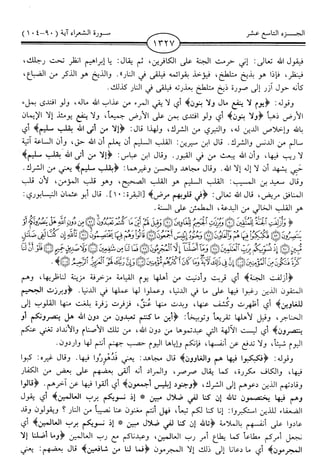 الجزء التاسع عشر
١٣٢٧
سورة الشعراء آية (٩٠-١٠٤)
فيقول الله تعالى: إني حرمت الجنة على الكافرين، ثم يقال: يا إبراهيم انظر تحت رجلك،
فينظر، فإذا هو بذيخ متلطخ، فيؤخذ بقوائمه فيلقى في النار». والذيخ هو الذكر من الضباع،
كأنه حول آزر إلى صورة ذيخ متلطخ بعذرته فيلقى في النار كذلك.
وقوله: ﴿يوم لا ينفع مال ولا بنون﴾ أي لا يقي المرء من عذاب الله ماله، ولو افتدى بملء
الأرض ذهباً ﴿ولا بنون﴾ أي ولو افتدى بمن على الأرض جميعاً، ولا ينفع يومئذ إلا الإيمان
بالله وإخلاص الدين له، والتبري من الشرك، ولهذا قال: ﴿إلا من أتى الله بقلب سليم﴾ أي
سالم من الدنس والشرك. قال ابن سيرين: القلب السليم أن يعلم أن الله حق، وأن الساعة آتية
لا ريب فيها، وأن الله يبعث من في القبور. وقال ابن عباس: ﴿إلا من أتى الله بقلب سليم﴾
حيي يشهد أن لا إله إلا الله. وقال مجاهد والحسن وغيرهما: ﴿بقلب سليم﴾ يعني من الشرك.
وقال سعيد بن المسيب: القلب السليم هو القلب الصحيح، وهو قلب المؤمن، لأن قلب
المنافق مريض، قال الله تعالى: ﴿في قلوبهم مرض﴾ [البقرة: ١٠]. قال أبو عثمان النيسابوري:
هو القلب الخالي من البدعة، المطمئن على السنة.
﴿أزلفت الجنة﴾ أي قربت وأدنيت من أهلها يوم القيامة مزخرفة مزينة لناظريها، وهم
المتقون الذين رغبوا فيها على ما في الدنيا، وعملوا لها عملها في الدنيا. ﴿وبرزت الجحيم
للغاوين﴾ أي أظهرت وكشف عنها، وبدت منها عنق، فزفرت زفرة بلغت منها القلوب إلى
الحناجر، وقيل لأهلها تقريعاً وتوبيخاً: ﴿أين ما كنتم تعبدون من دون الله هل ينصرونكم أو
ينتصرون﴾ أي ليست الآلهة التي عبدتموها من دون الله، من تلك الأصنام والأنداد تغني عنكم
اليوم شيئاً، ولا تدفع عن أنفسها، فإنكم وإياها اليوم حصب جهنم أنتم لها واردون.
وقوله: ﴿فكبكبوا فيها هم والغاوون﴾ قال مجاهد: يعني فدهوروا فيها. وقال غيره: كبوا
فيها، والكاف مكررة، كما يقال صرصر، والمراد أنه ألقى بعضهم على بعض من الكفار
وقادتهم الذين دعوهم إلى الشرك، ﴿وجنود إبليس أجمعون﴾ أي ألقوا فيها عن آخرهم. ﴿قالوا
وهم فيها يختصمون تالله إن كنا لفي ضلال مبين * إذ نسويكم برب العالمين﴾ أي يقول
الضعفاء للذين استكبروا: إنا كنا لكم تبعاً، فهل أنتم مغنون عنا نصيباً من النار؟ ويقولون وقد
عادوا على أنفسهم بالملامة ﴿تالله إن كنا لفي ضلال مبين * إذ نسويكم برب العالمين﴾ أي
نجعل أمركم مطاعاً كما يطاع أمر رب العالمين، وعبدناكم مع رب العالمين ﴿وما أضلنا إلا
المجرمون﴾ أي ما دعانا إلى ذلك إلا المجرمون ﴿فما لنا من شافعين﴾ قال بعضهم: يعني